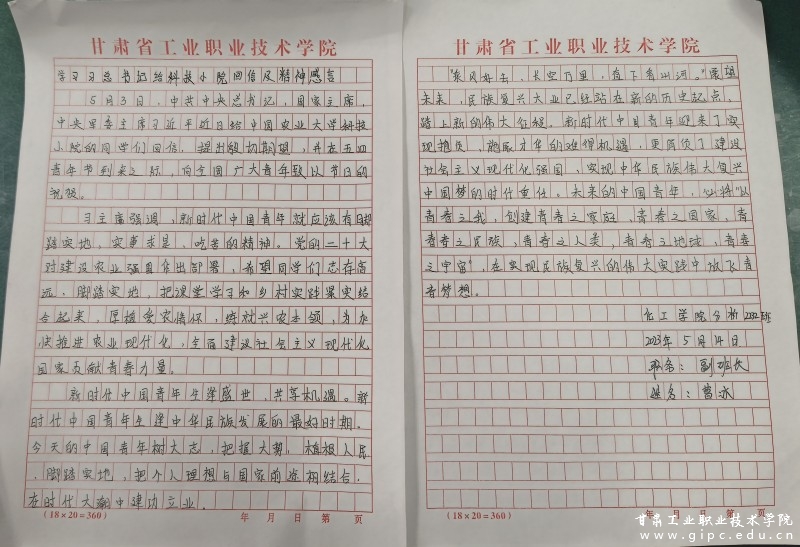 甘肃省工业职业技术学院
学习习总书记给科技小院回信及精神感言
5月3日，中共中央总书记，国家主席，
中央军委主席习近平近日给中国农业大学科技
小院的同学们回信，提出殷切期望，并在五四
青年节到来之际，向全国广大青年致以节日的
祝贺。
习主席强调，新时代中国青年就应该有脚
踏实地、实事求是、吃苦的精神。党的二十大
对建设农业强国作出部署，希望同学们志存高
远、脚踏实地，把课堂学习和乡村实践紧实结
合起来，厚植爱农情怀，练就兴农本领，为加
快推进农业现代化，全面建设社会主义现代化
国家贡献青春力量。
新时代中国青年生逢盛世，共享机遇。新
时代中国青年生逢中华民族发展的最好时期，
今天的中国青年树大志，把握大势，植根人民
、脚踏实地，把个人理想与国家前途相结合，
在时代大潮中建功立业。
(18×20=360)
年 月 日 第 页
甘肃省工业职业技术学院
“乘风好去，长空万里，直下看山河。”展望
未来，民族复兴大业已经站在新的历史起点，
踏上新的伟大征程。新时代中国青年迎来了实
现抱负，施展才华的难得机遇，更肩负了建设
社会主义现代化强国，实现中华民族伟大复兴
中国梦的时代重任。未来的中国青年，必将“以
青春之我，创建青春之家庭，青春之国家，青
青春之民族，青春之人类，青春之地球，青春
之宇宙”，在实现民族复兴的伟大实践中放飞青
春梦想。
化工学院分析2232班
2023年5月14日
职务：副班长
姓名：曹冰
(18×20=360)
年 月 日 第 页
甘肃工业职业技术学院
www.gipc.edu.cn